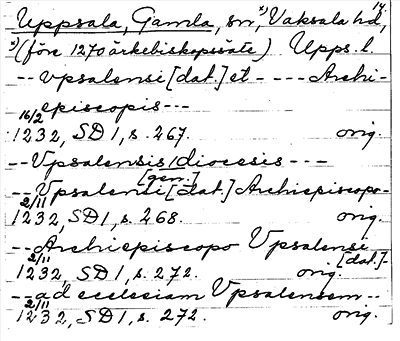 Uppsala, Gamla, sn, Vaksala hd, 17.
(före 1270 ärkebiskopssäte) Upps. l.
-- vpsalensi [dat.] et - --- Archi-
episcopis ---
16/2 1232, SD 1, s. 267. orig.
-- Vpsalensis diocesis ---
[gen.]
-- Vpsalensi [dat.] Archiepiscopo-
2/11 1232, SD 1, s. 268. orig.
-- Archiepiscopo Vpsalensi
[dat.]-
2/11 1232, SD 1, s. 272. orig.
-- ad ecclesiam Vpsalensem --
2/11 1232, SD 1, s. 272. orig.